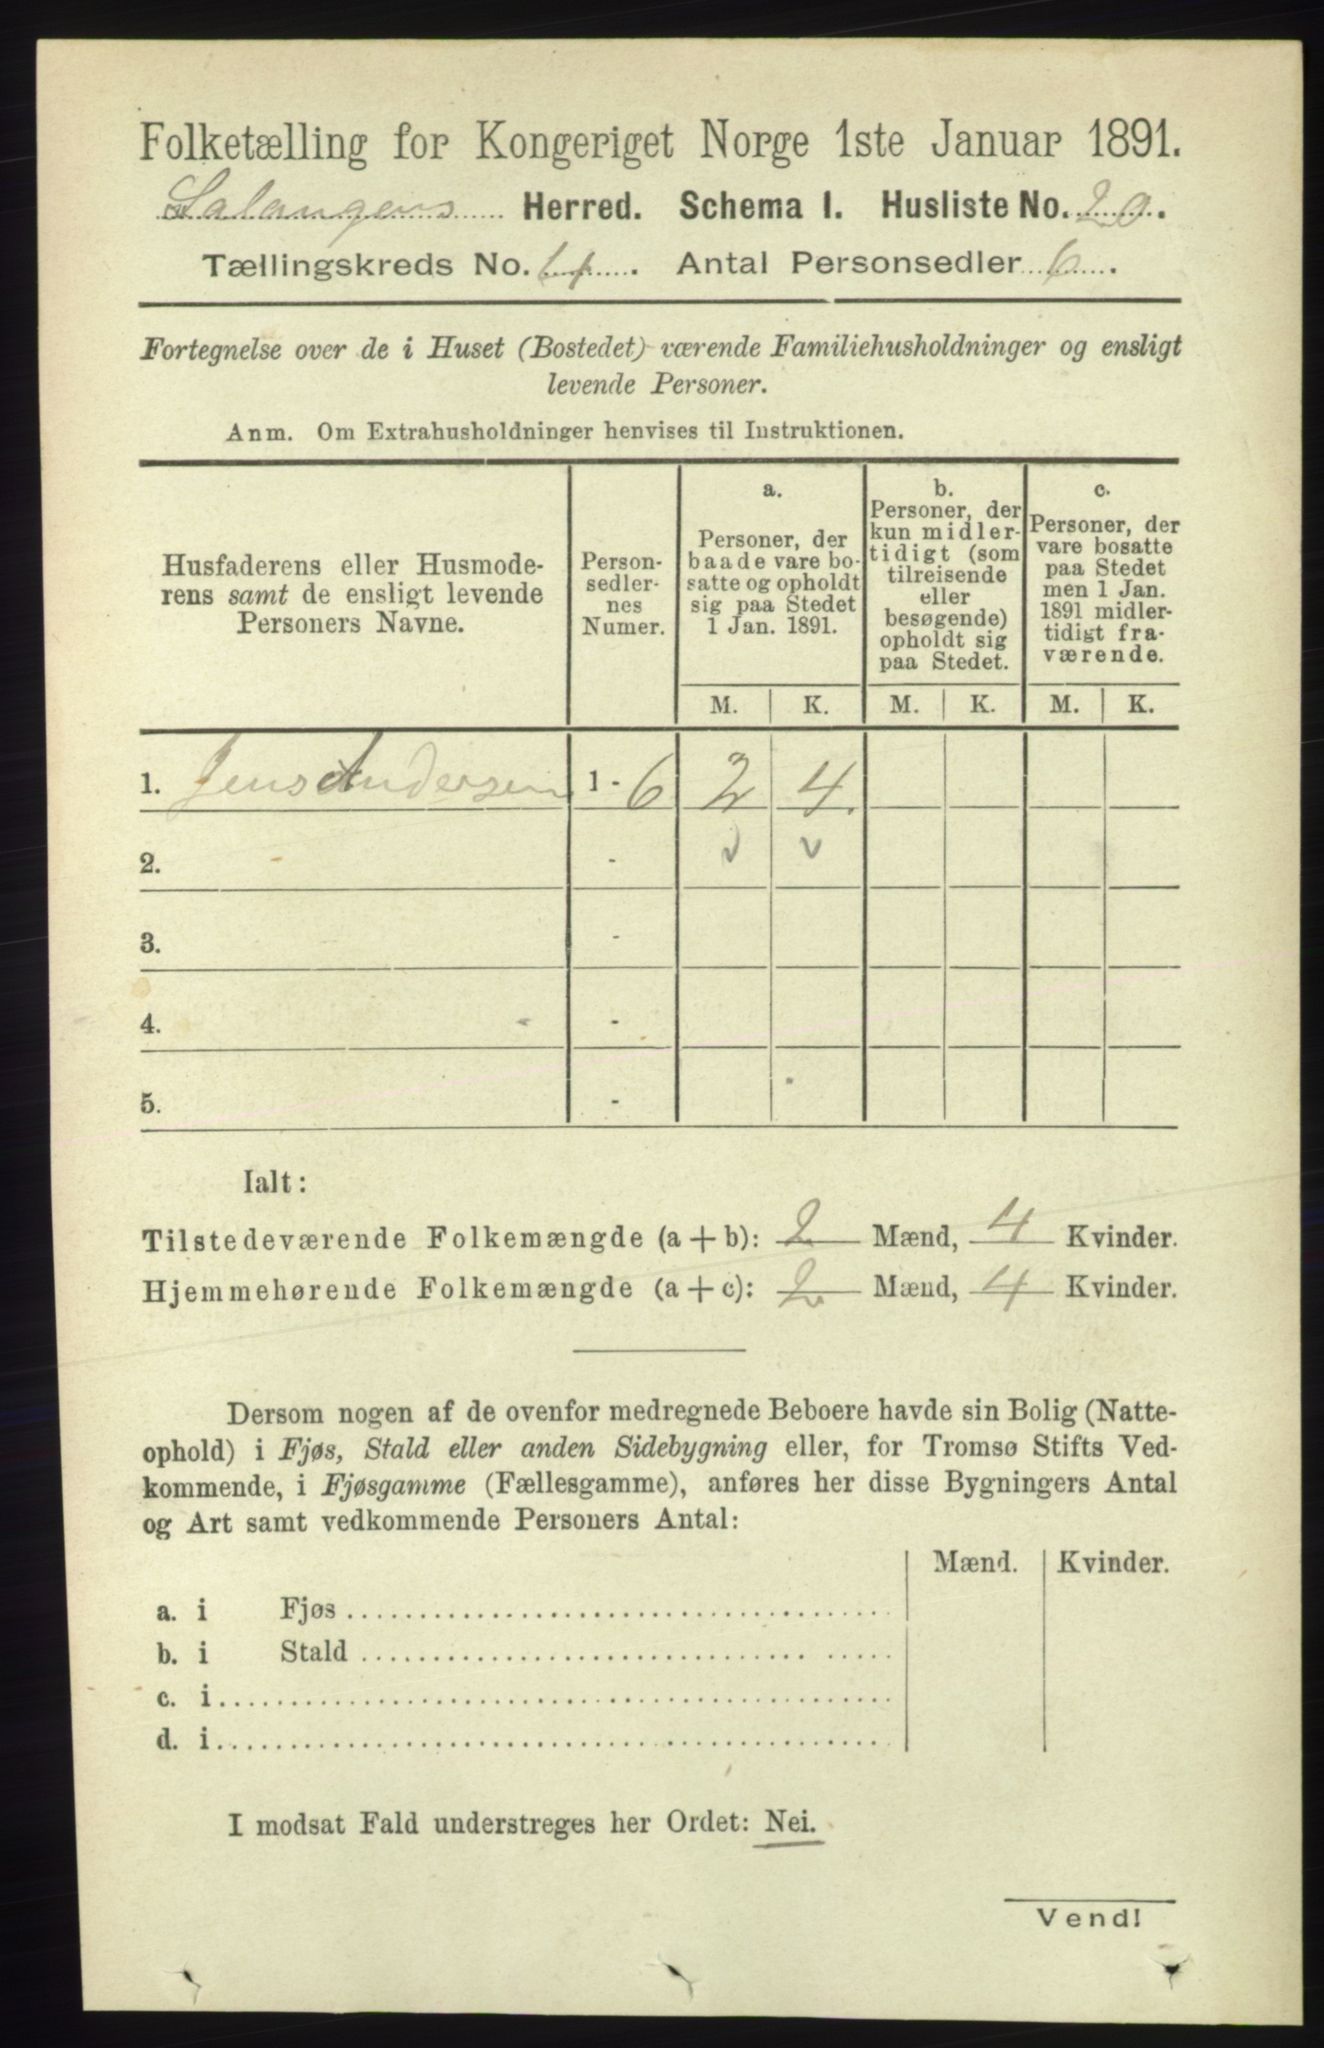 Folketælling for Kongeriget Norge 1ste Januar 1891.
Salangens Herred. Schema I. Husliste No. 20.
Tællingskreds No. 4. Antal Personsedler 6.
Fortegnelse over de i Huset (Bostedet) værende Familiehusholdninger og ensligt
levende Personer.
Anm. Om Extrahusholdninger henvises til Instruktionen.
Husfaderens eller Husmode-
rens samt de ensligt levende
Personers Navne.
Person-
sedler-
nes
Numer.
a.
Personer, der
baade vare bo-
satte og opholdt
sig paa Stedet
1 Jan. 1891.
b.
Personer, der
kun midler-
tidigt (som
tilreisende
eller
besøgende)
opholdt sig
paa Stedet.
c.
Personer, der
vare bosatte
paa Stedet
men 1 Jan.
1891 midler-
tidigt fra-
værende.
M. K. M. K. M. K.
1. Jens Andersen 1 - 6 2 4.
2. -
3. -
4. -
5. -
Ialt:
Tilstedeværende Folkemængde (a + b): 2 Mænd, 4 Kvinder.
Hjemmehørende Folkemængde (a + c): 2 Mænd, 4 Kvinder.
Dersom nogen af de ovenfor medregnede Beboere havde sin Bolig (Natte-
ophold) i Fjøs, Stald eller anden Sidebygning eller, for Tromsø Stifts Ved-
kommende, i Fjøsgamme (Fællesgamme), anføres her disse Bygningers Antal
og Art samt vedkommende Personers Antal:
Mænd. Kvinder.
a. i Fjøs
b. i Stald
c. i
d. i
I modsat Fald understreges her Ordet: Nei.
Vend!